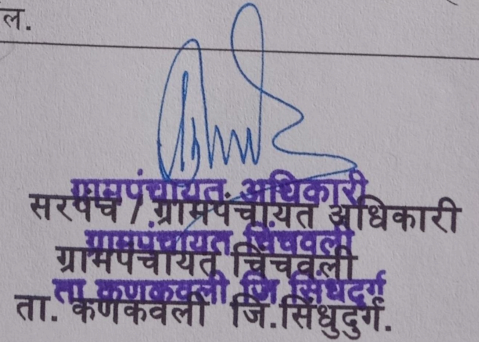 ल.
ग्रामपंचायत अधिकारी
सरपंच / ग्रामपंचायत अधिकारी
ग्रामपंचायत चिंचवली
ग्रामपंचायत चिंचवली
ता कणकवली जि सिंधदुर्ग
ता. कणकवली जि.सिंधुदुर्ग.